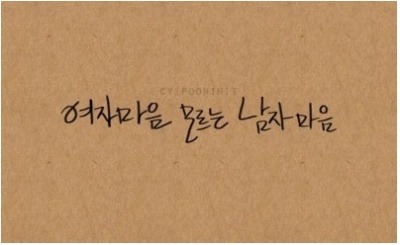 여자마음 모르는 남자 마음